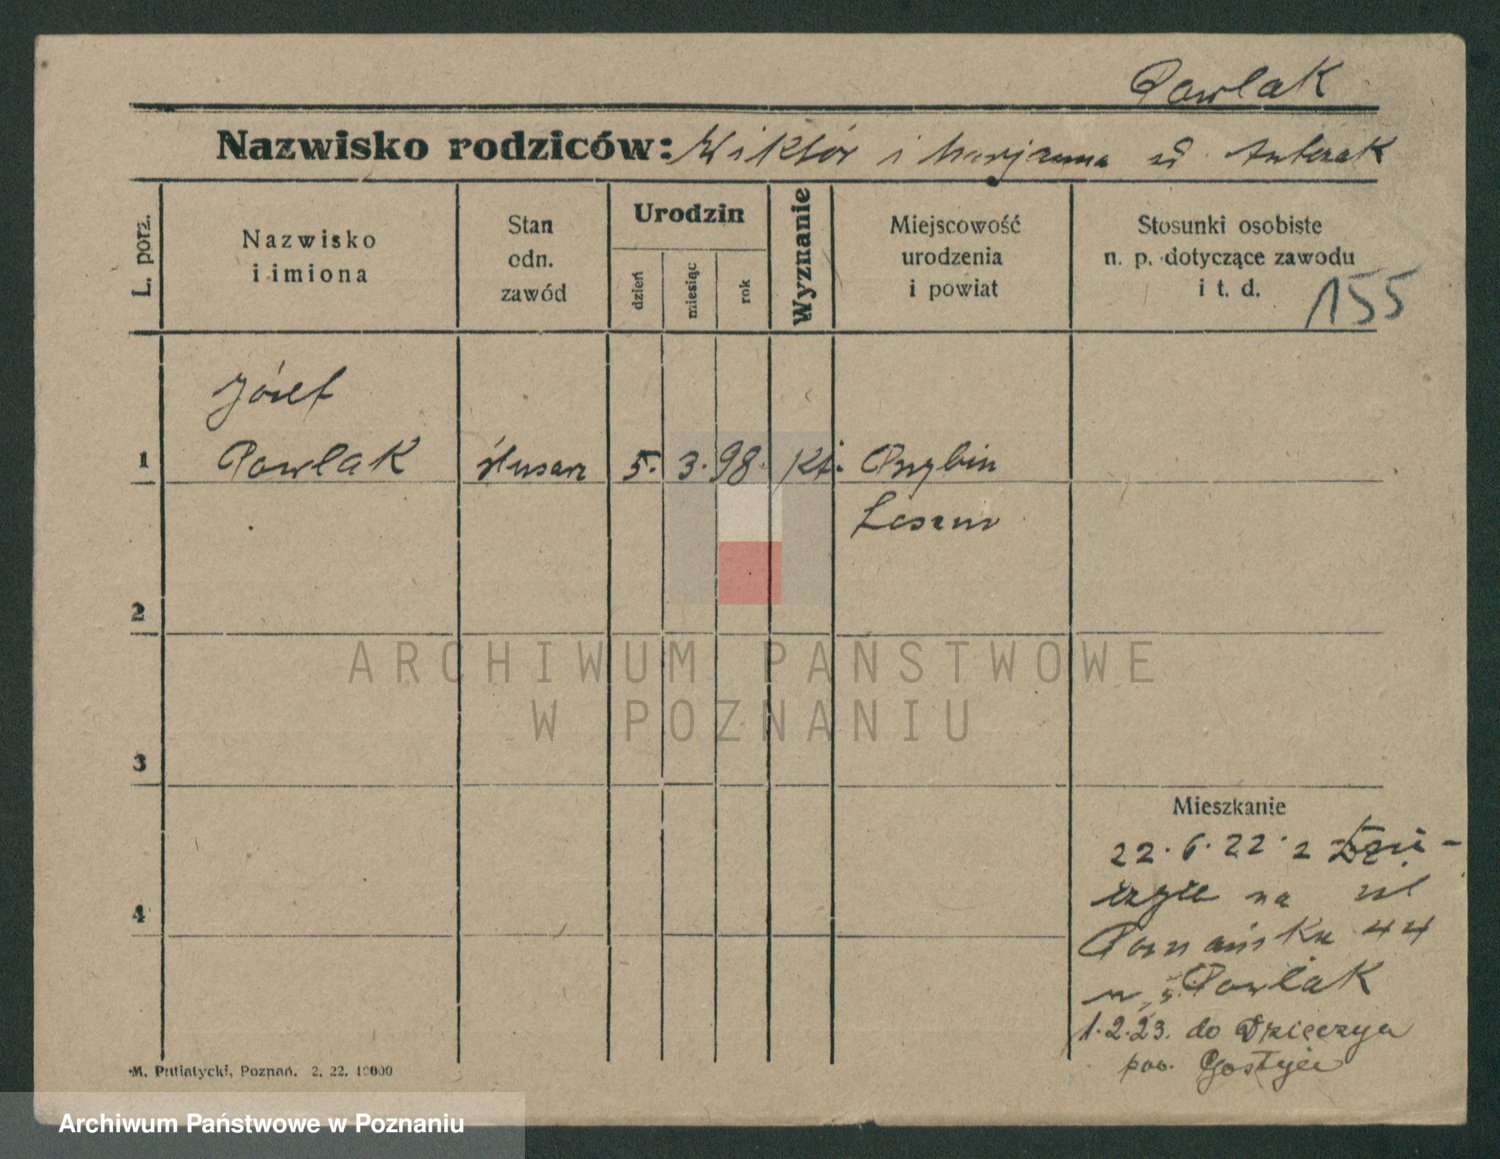 Pawlak
Nazwisko rodziców: Wiktór i Marjanna ur. Antczak
L. porz.
Nazwisko i imiona
Stan odn. zawód
Urodzin
dzień
miesiąc
rok
Wyznanie
Miejscowość urodzenia i powiat
Stosunki osobiste n. p. dotyczące zawodu i t. d.
155
Józef
1 Pawlak ślusarz 5. 3. 98. kt. Przybin
Leszno
2
3
4
ARCHIWUM PAŃSTWOWE
W POZNANIU
Mieszkanie
22. 6. 22. z Dzię-
czyna na ul
Poznańska 44
Pawlak
1.2.23. do Dzięczyna
pow. Gostyń
M. Putiatycki, Poznań. 2. 22. 10000
Archiwum Państwowe w Poznaniu